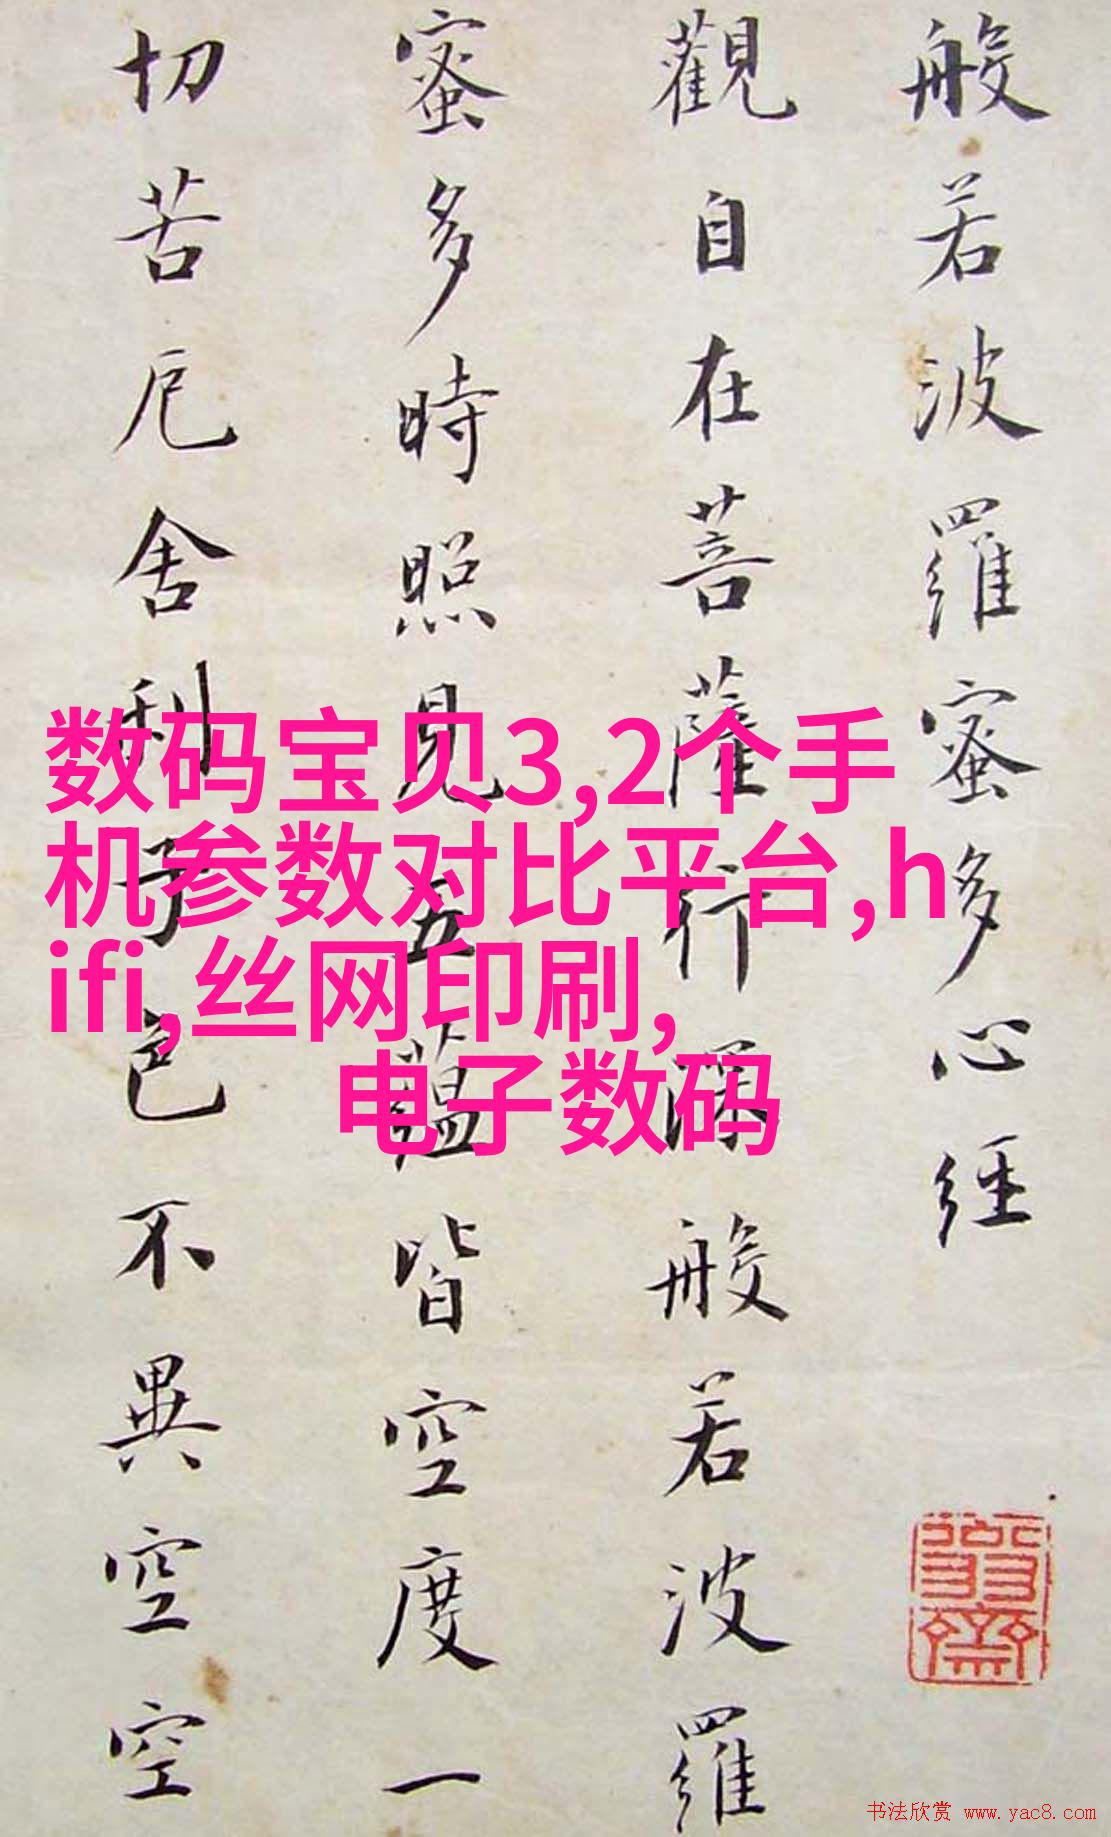 般若波羅蜜多心經
觀自在菩薩行深般若波羅
蜜多時照見五蘊皆空度一
切苦厄舍利子色不異空空
数码宝贝3,2个手
机参数对比平台,h
ifi,丝网印刷,
电子数码
书法欣赏 www.yac8.com